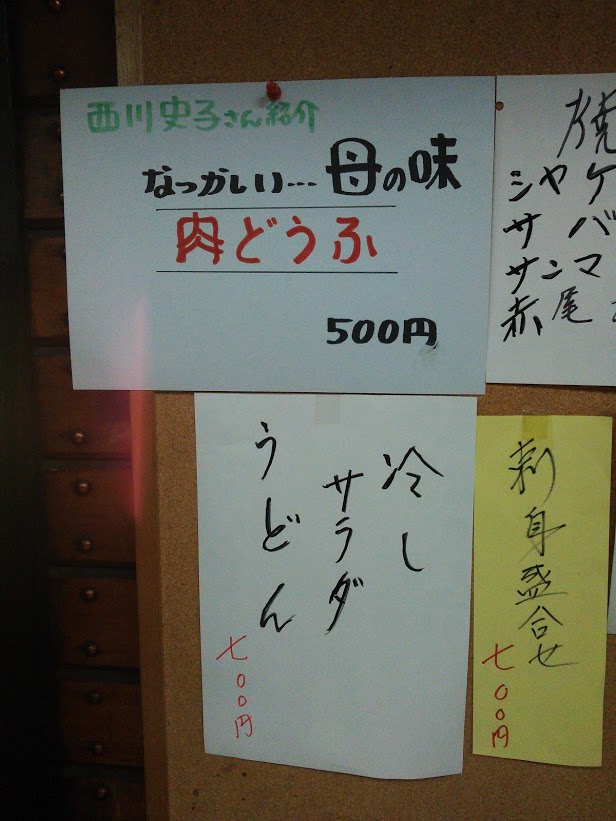 西川史子さん紹介
なつかしい…母の味
肉どうふ
500円
焼
シャケ
サバ
サンマ
赤尾
冷し
サラダ
うどん
七〇〇円
刺身盛合せ
七〇〇円